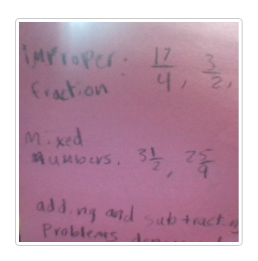 improper: 17/4, 3/2,
fraction
Mixed
numbers. 3 1/2, 2 5/9
adding and subtracting
Problems